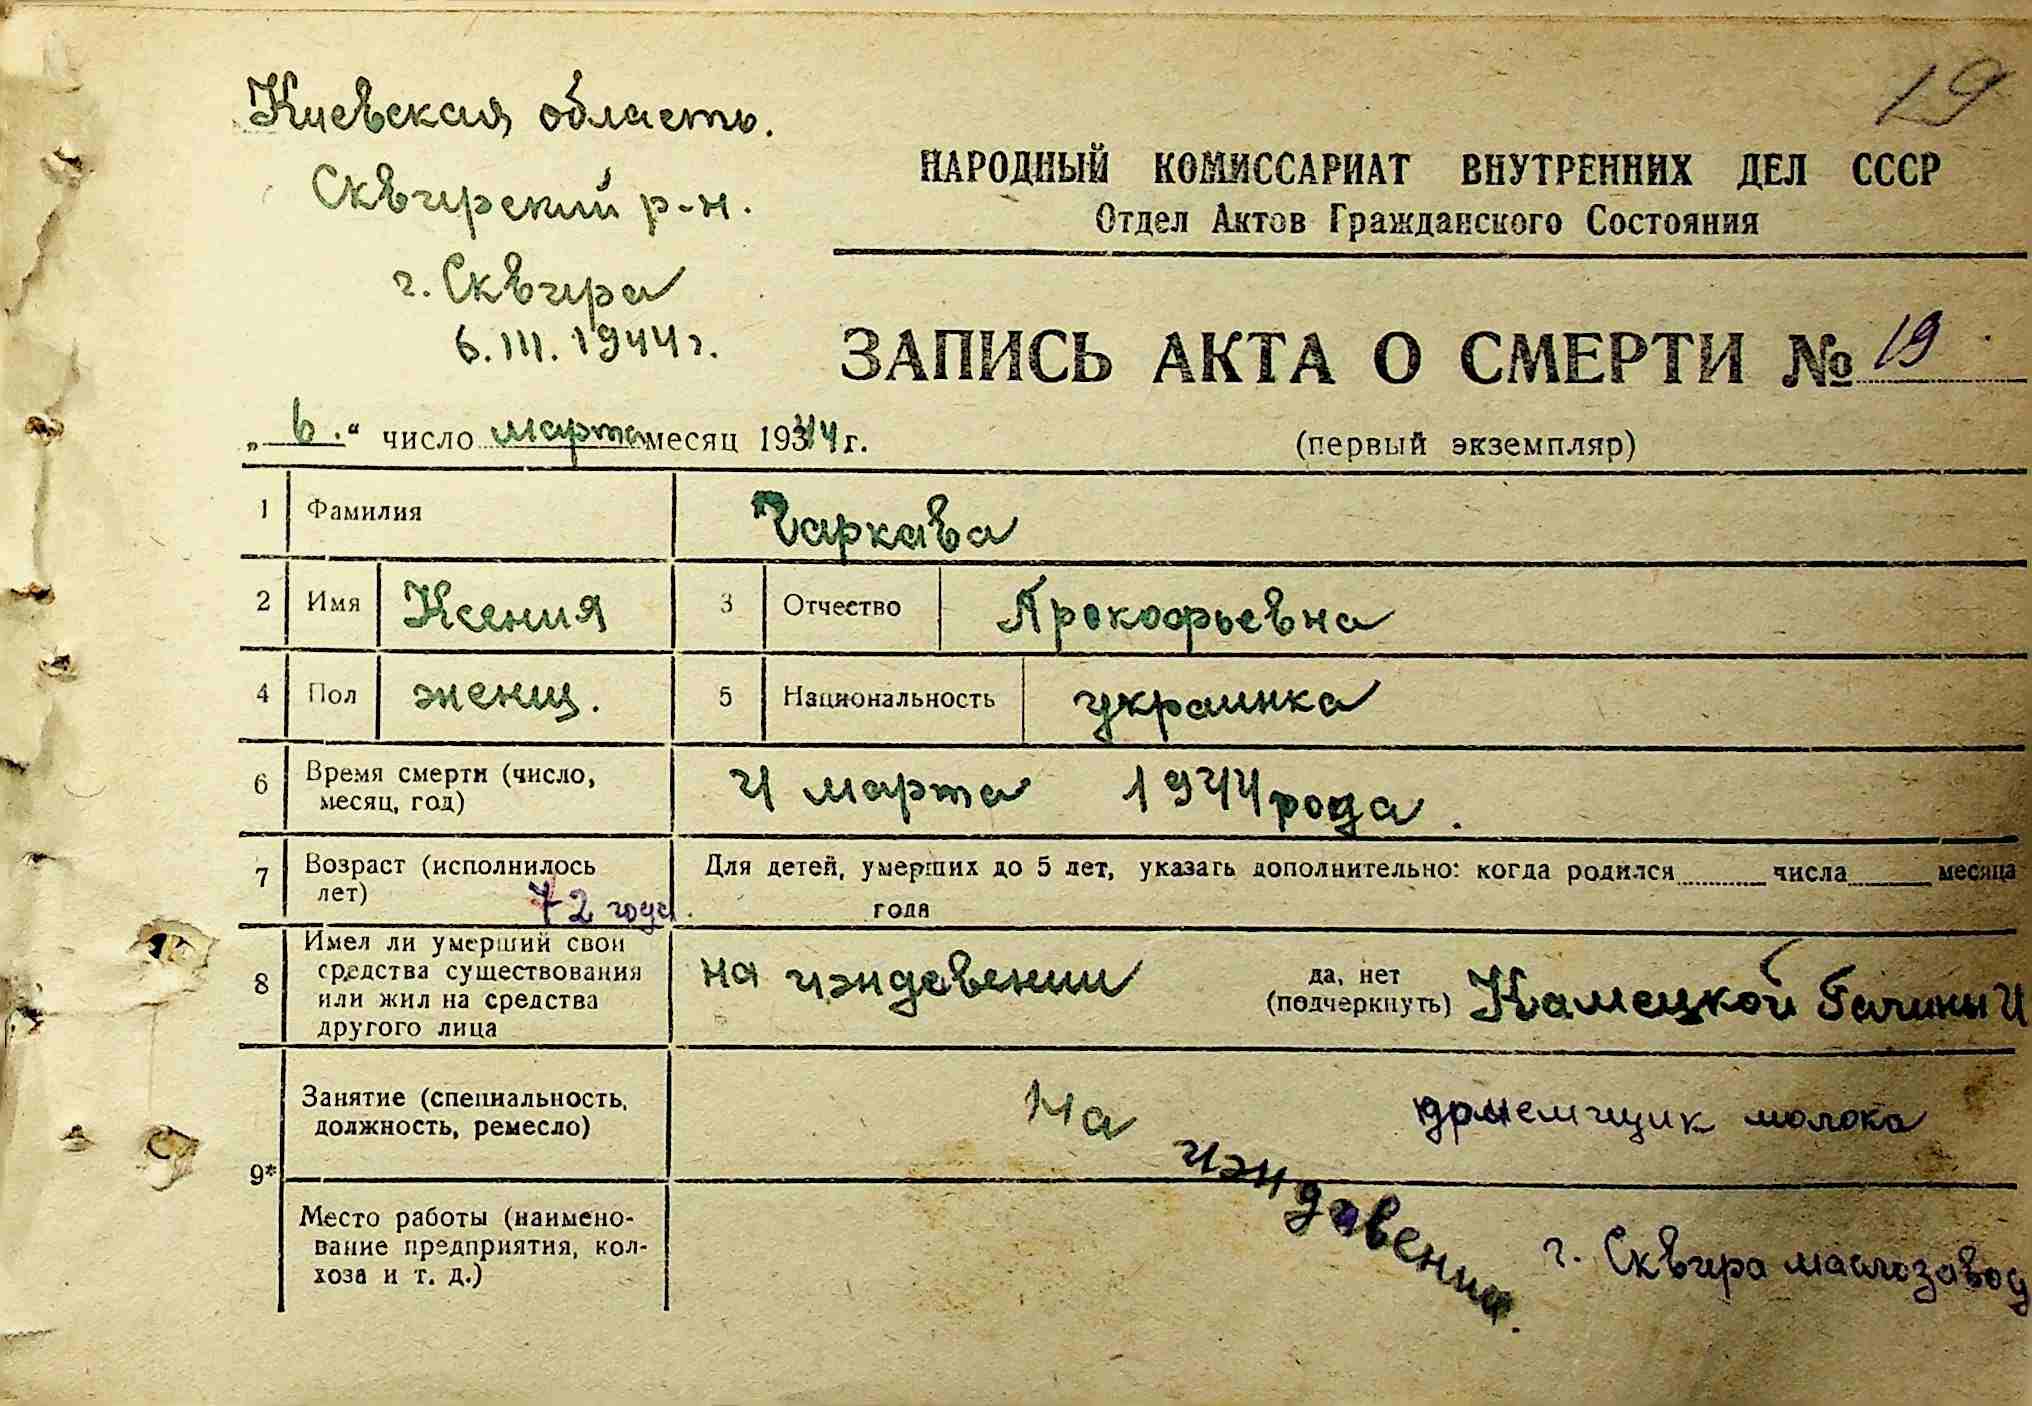 19
Киевская область.
Сквирский р-н.
г. Сквира
6.III.1944 г.
НАРОДНЫЙ КОМИССАРИАТ ВНУТРЕННИХ ДЕЛ СССР
Отдел Актов Гражданского Состояния
ЗАПИСЬ АКТА О СМЕРТИ № 19
„6.“ число марта месяц 1944 г.
(первый экземпляр)
1 Фамилия Чаркава
2 Имя Ксения 3 Отчество Прокофьевна
4 Пол женщ. 5 Национальность украинка
6 Время смерти (число, месяц, год) 4 марта 1944 рода.
7 Возраст (исполнилось лет) 72 года. Для детей, умерших до 5 лет, указать дополнительно: когда родился числа месяца
года
8 Имел ли умерший свои средства существования или жил на средства другого лица на иэндевении да, нет (подчеркнуть) Камецкой Галины И
9* Занятие (специальность, должность, ремесло) На иэндевении. молока
Место работы (наименование предприятия, колхоза и т. д.) г. Сквира маслозавод